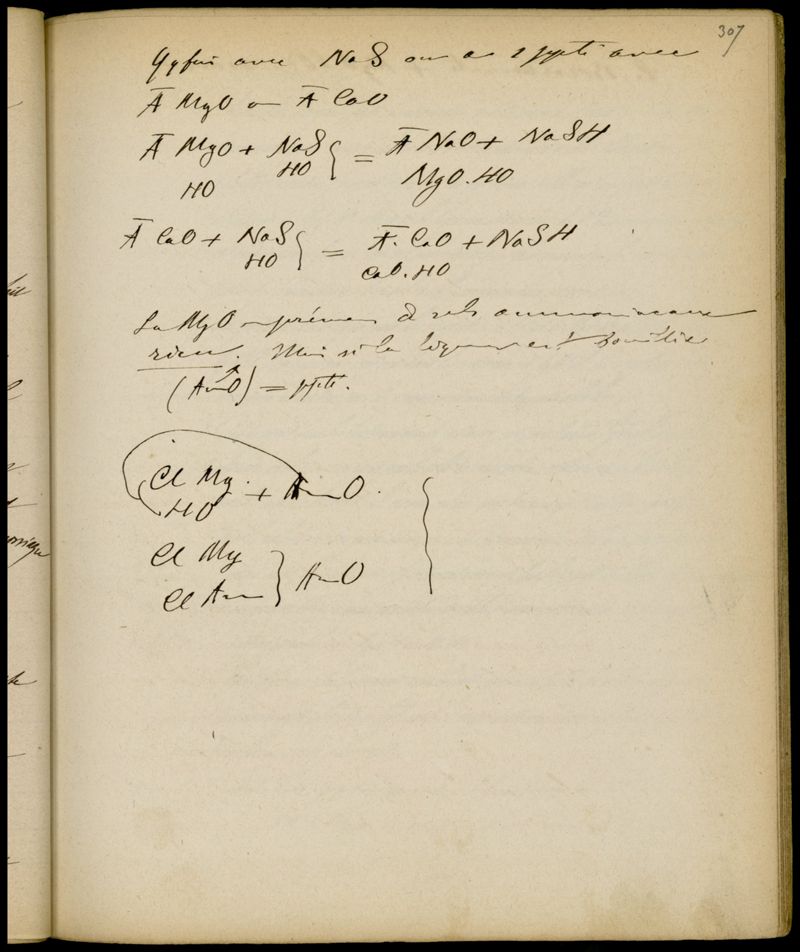 307
avec NaS on a 1 ppté avec
Ā MgO ou Ā CaO
Ā MgO + NaS } = Ā NaO + NaSH
HO HO MgO.HO
Ā CaO + NaS } = Ā. CaO + NaSH
HO CaO.HO
La MgO en présence de sels ammoniacaux
rien. Mais si la liqueur est
(AmO) = ppté.
Cl Mg + AmO
HO
Cl Mg } AmO
Cl Am